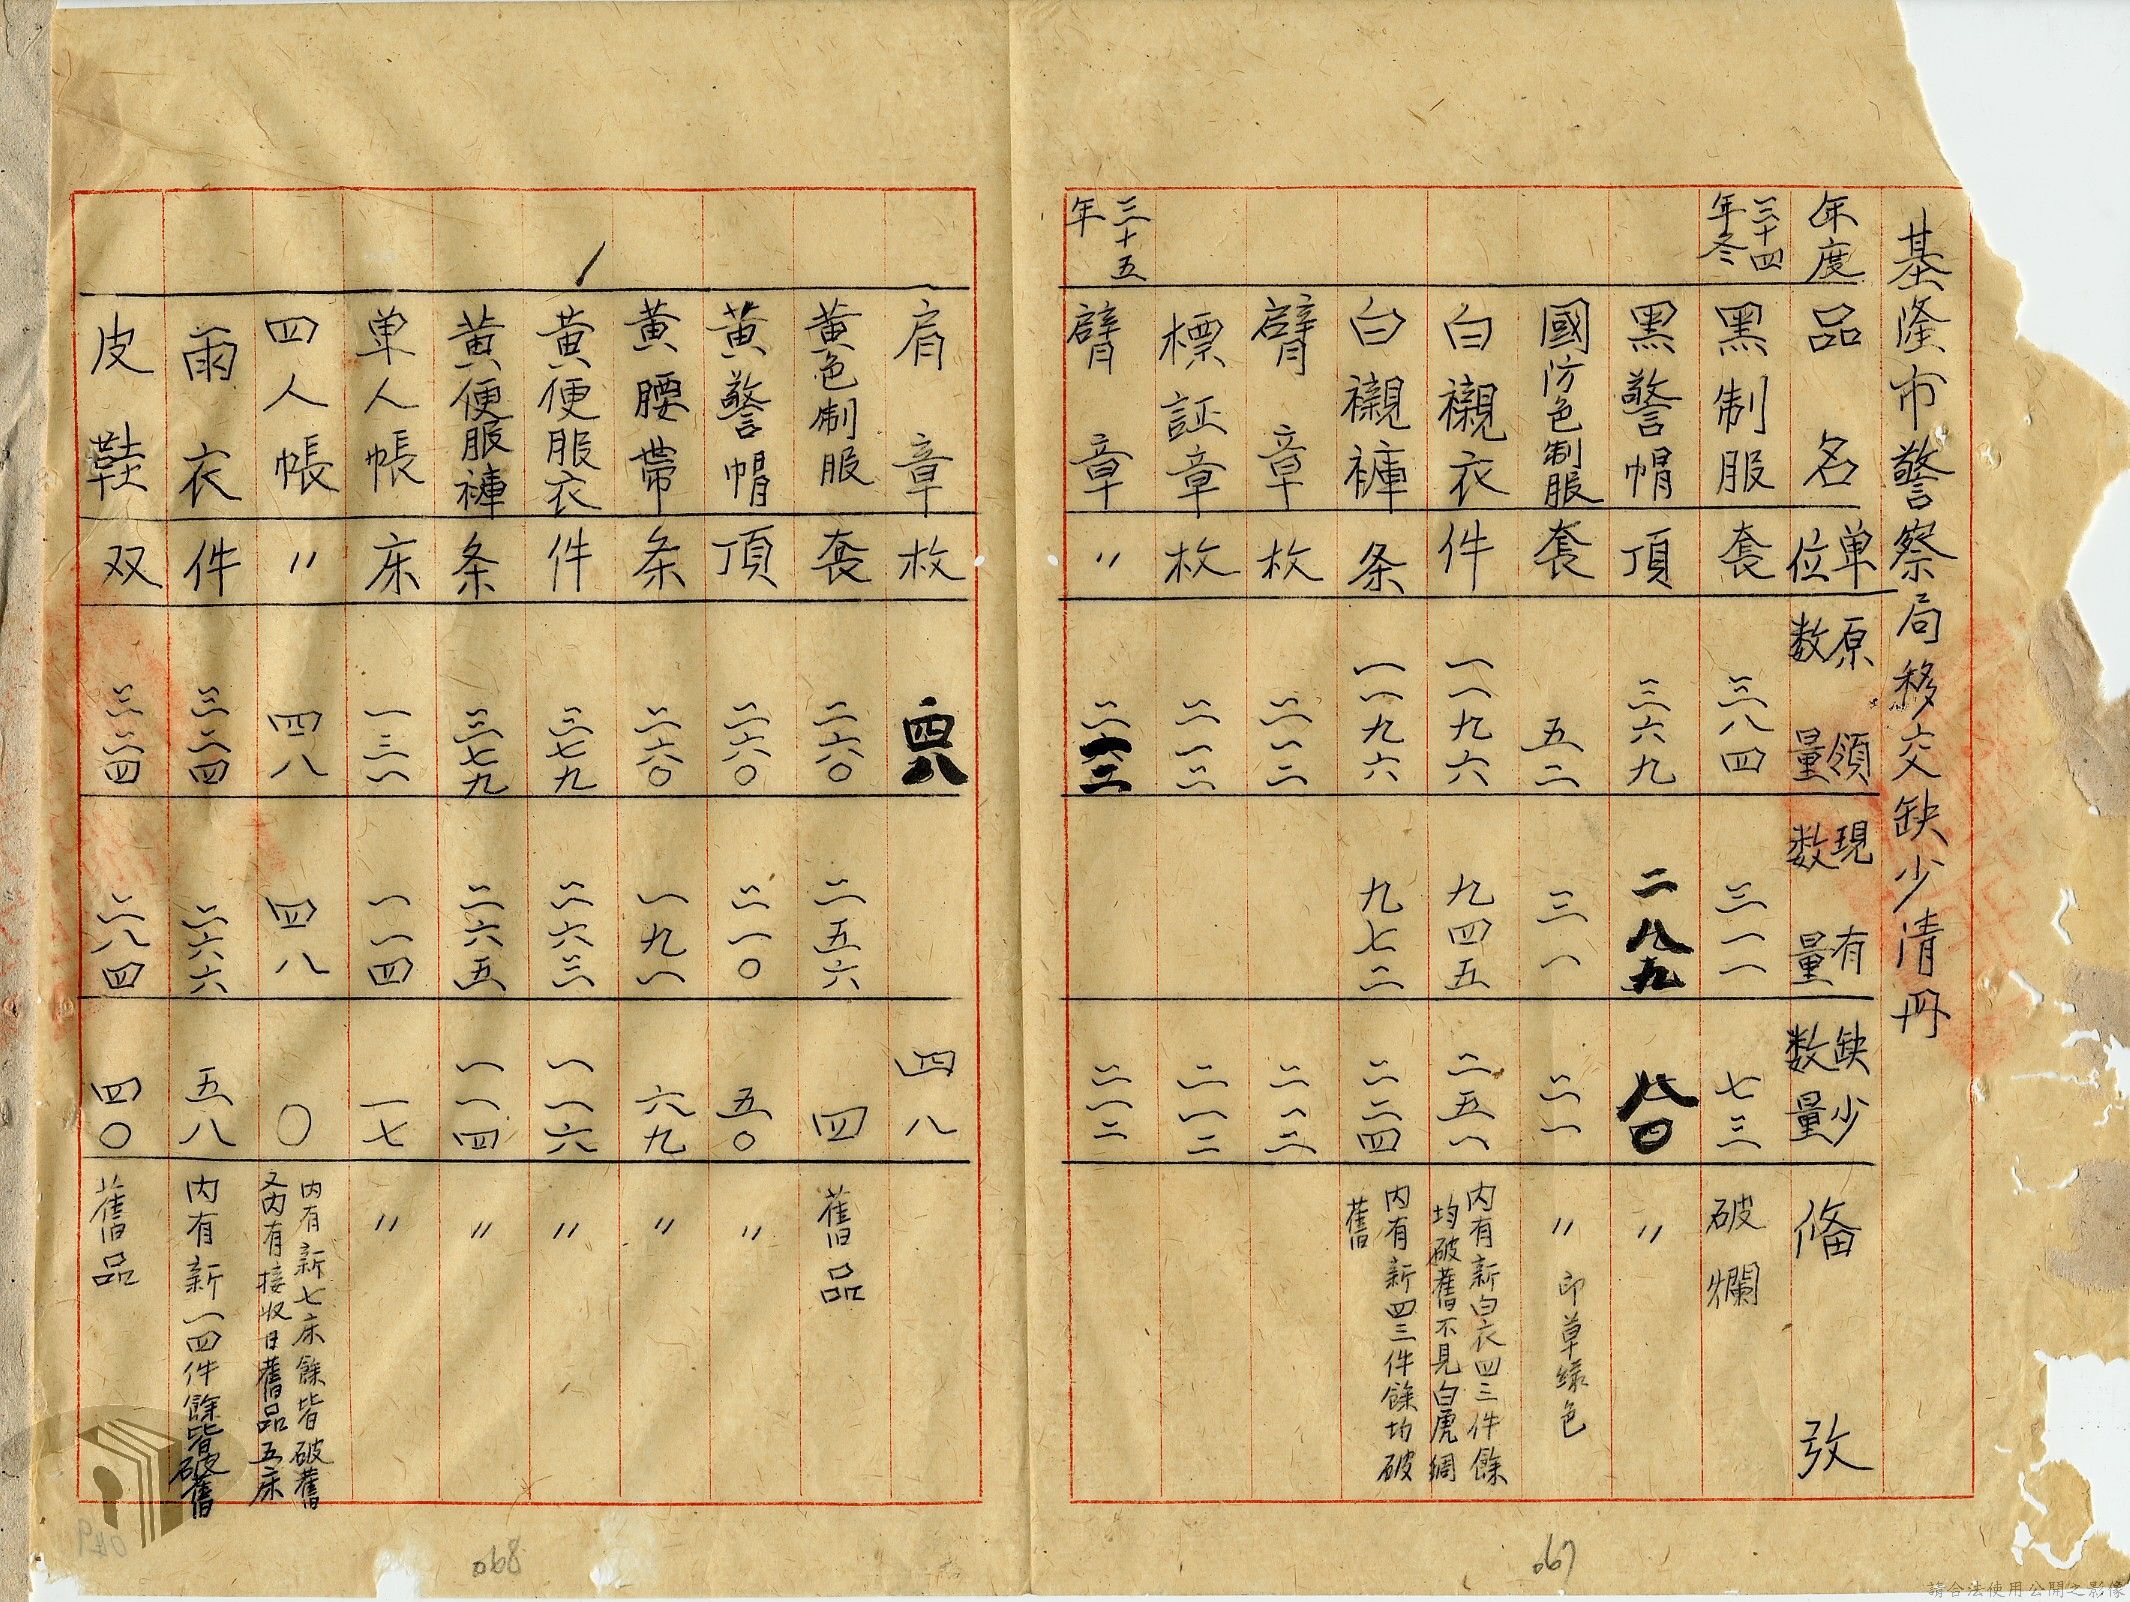 基隆市警察局移交缺少清冊
年度 品名 單位 原領数量 現有数量 缺少数量 俻攷
三十四年冬 黑制服 套 三八四 三一一 七三 破爛
黑警帽 頂 三六九 二八九 八〇 〃
國防色制服 套 五二 三一 二一 〃 印草綠色
白襯衣 件 一一九六 九四五 二五一 内有新白衣四三件餘均破舊不見白虎綢
白襯褲 条 一一九六 九七二 二二四 内有新四三件餘均破舊
臂章 枚 二一二 二一二
標証章 枚 二一二 二一二
三十五年 臂章 〃 二一二 二一二
肩章 枚 四八 四八
黄色制服 套 二六〇 二五六 四 舊品
黄警帽 頂 二六〇 二一〇 五〇 〃
黄腰帶 条 二六〇 一九一 六九 〃
黄便服衣 件 三七九 二六三 一一六 〃
黄便服褲 条 三七九 二六五 一一四 〃
单人帳 床 一三一 一一四 一七 〃
四人帳 〃 四八 四八 〇 内有新七床餘皆破舊又内有接收日舊品五床
雨衣 件 三二四 二六六 五八 内有新一四件餘皆破舊
皮鞋 双 三二四 二八四 四〇 舊品
067
068
049
請合法使用公開之影像